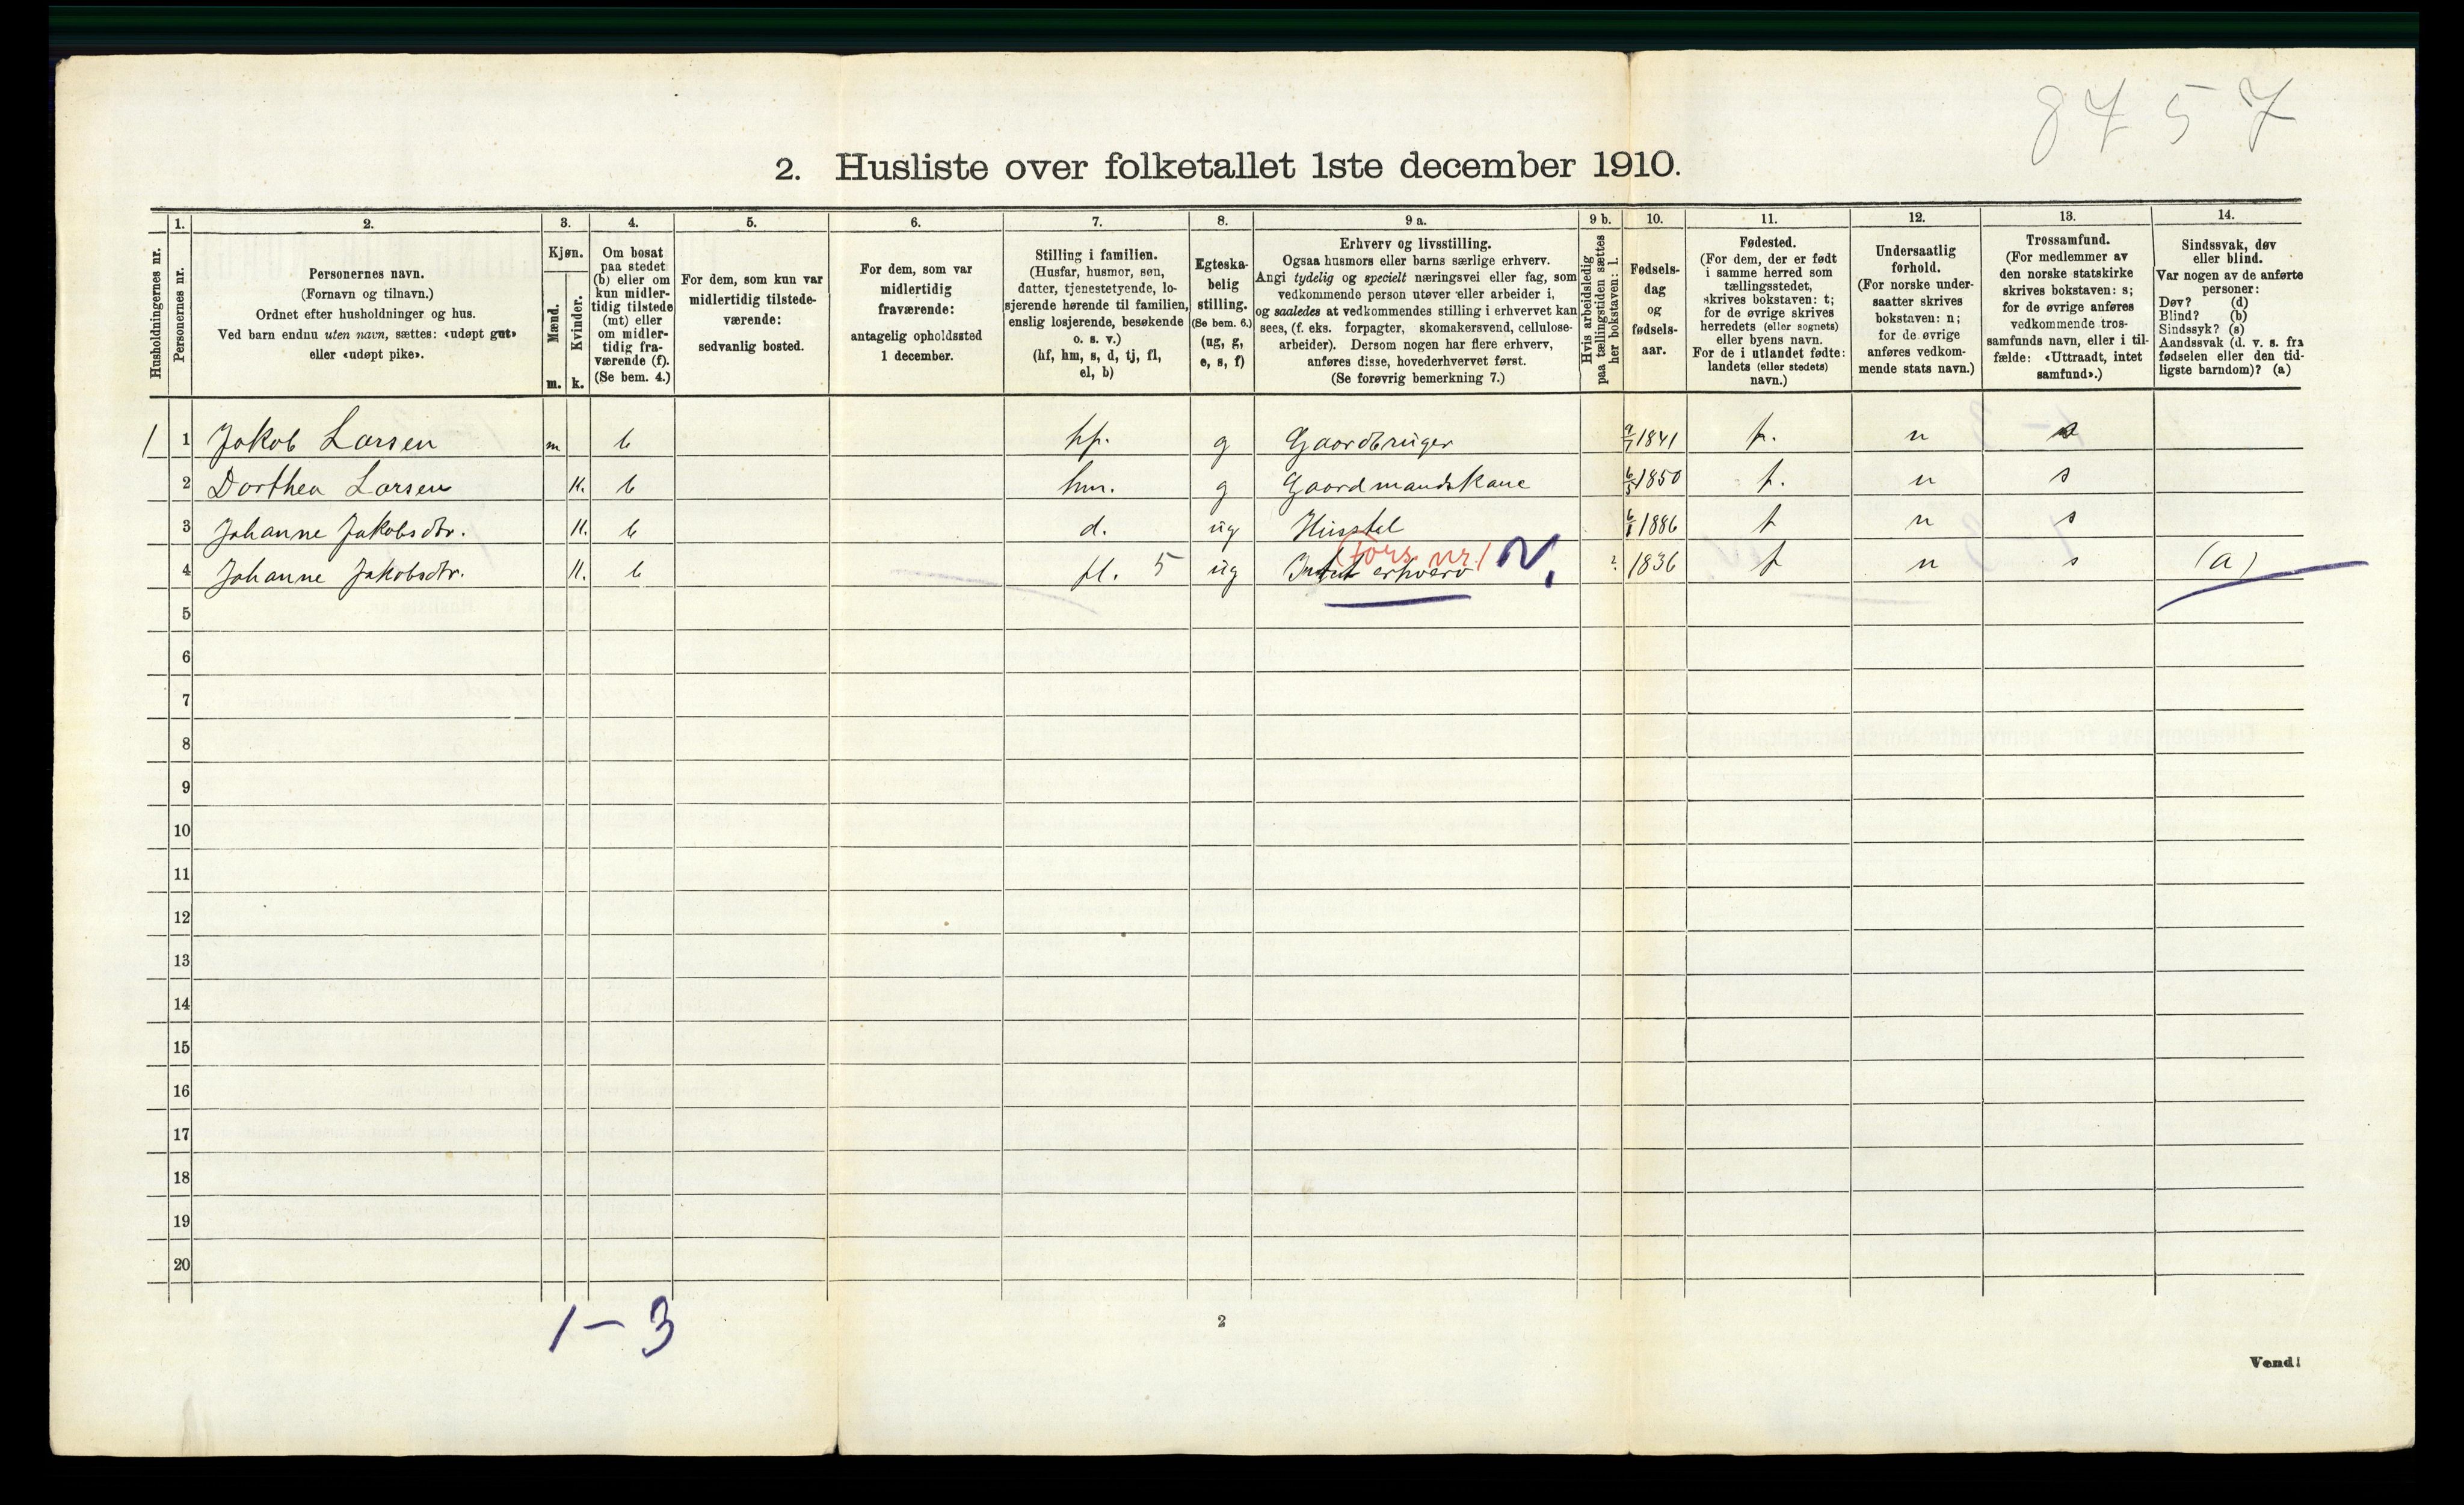 8757
2. Husliste over folketallet 1ste december 1910.
Husholdningernes nr.
1.
Personernes nr.
2.
Personernes navn.
(Fornavn og tilnavn.)
Ordnet efter husholdninger og hus.
Ved barn endnu uten navn, sættes: «udøpt gut»
eller «udøpt pike».
3.
Kjøn.
Mænd.
m.
Kvinder.
k.
4.
Om bosat
paa stedet
(b) eller om
kun midler-
tidig tilstede
(mt) eller
om midler-
tidig fra-
værende (f).
(Se bem. 4.)
5.
For dem, som kun var
midlertidig tilstede-
værende:
sedvanlig bosted.
6.
For dem, som var
midlertidig
fraværende:
antagelig opholdssted
1 december.
7.
Stilling i familien.
(Husfar, husmor, søn,
datter, tjenestetyende, lo-
sjerende hørende til familien,
enslig losjerende, besøkende
o. s. v.)
(hf, hm, s, d, tj, fl,
el, b)
8.
Egteska-
belig
stilling.
(Se bem. 6.)
(ug, g,
e, s, f)
9 a.
Erhverv og livsstilling.
Ogsaa husmors eller barns særlige erhverv.
Angi tydelig og specielt næringsvei eller fag, som
vedkommende person utøver eller arbeider i,
og saaledes at vedkommendes stilling i erhvervet kan
sees, (f. eks. forpagter, skomakersvend, cellulose-
arbeider). Dersom nogen har flere erhverv,
anføres disse, hovederhvervet først.
(Se forøvrig bemerkning 7.)
9 b.
Hvis arbeidsledig
paa tællingstiden sættes
her bokstaven: l.
10.
Fødsels-
dag
og
fødsels-
aar.
11.
Fødested.
(For dem, der er født
i samme herred som
tællingsstedet,
skrives bokstaven: t;
for de øvrige skrives
herredets (eller sognets)
eller byens navn.
For de i utlandet fødte:
landets (eller stedets)
navn.)
12.
Undersaatlig
forhold.
(For norske under-
saatter skrives
bokstaven: n;
for de øvrige
anføres vedkom-
mende stats navn.)
13.
Trossamfund.
(For medlemmer av
den norske statskirke
skrives bokstaven: s;
for de øvrige anføres
vedkommende tros-
samfunds navn, eller i til-
fælde: «Uttraadt, intet
samfund».)
14.
Sindssvak, døv
eller blind.
Var nogen av de anførte
personer:
Døv? (d)
Blind? (b)
Sindssyk? (s)
Aandssvak (d. v. s. fra
fødselen eller den tid-
ligste barndom)? (a)
1 1 Jakob Larsen m b hf. g Gaardbruger 9/7 1841 t. n s
2 Dorthea Larsen k. b hm. g Gaardmandskone 6/5 1850 t. n s
3 Johanne Jakobsdtr. k. b d. ug Husstel 6/1 1886 t n s
(fors. nr. 1 N.
4 Johanne Jakobsdtr. k. b fl. 5 ug Intet erhverv ? 1836 t n s (a)
5
6
7
8
9
10
11
12
13
14
15
16
17
18
19
20
1-3
2
Vend!